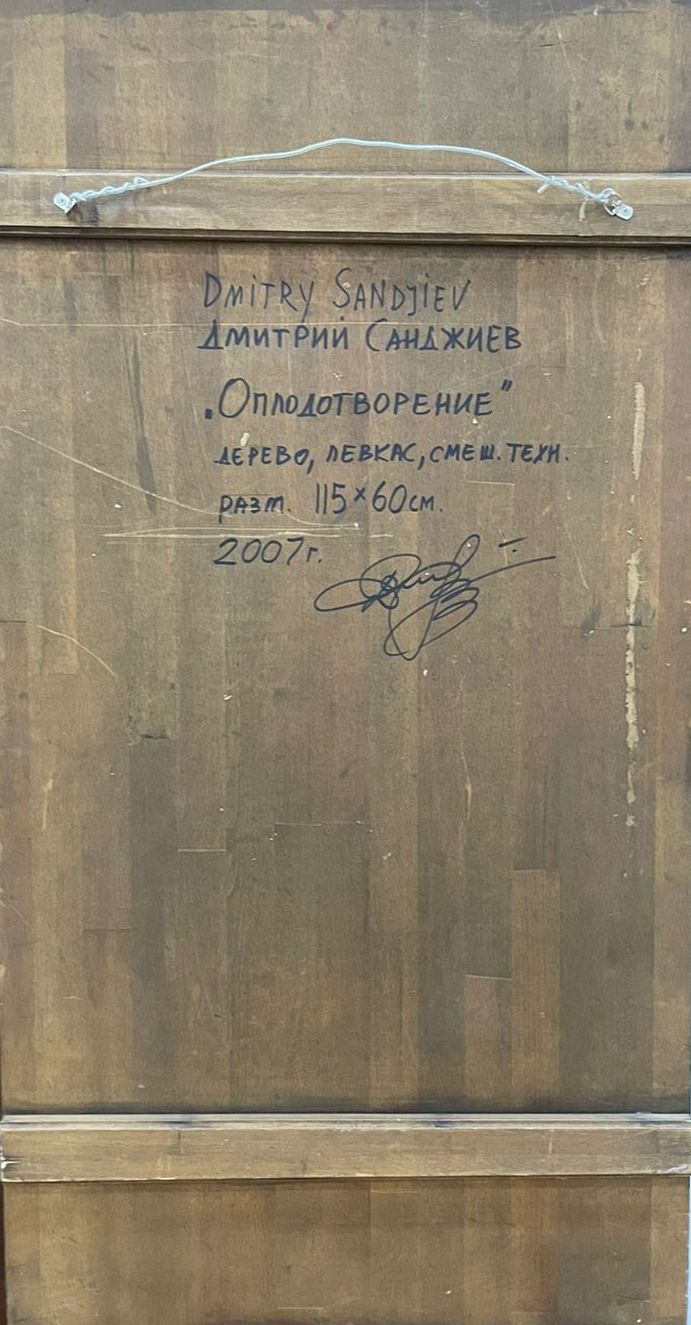 DMITRY SANDJIEV
ДМИТРИЙ САНДЖИЕВ
„ОПЛОДОТВОРЕНИЕ"
ДЕРЕВО, ЛЕВКАС, СМЕШ. ТЕХН.
РАЗМ. 115×60см.
2007г.